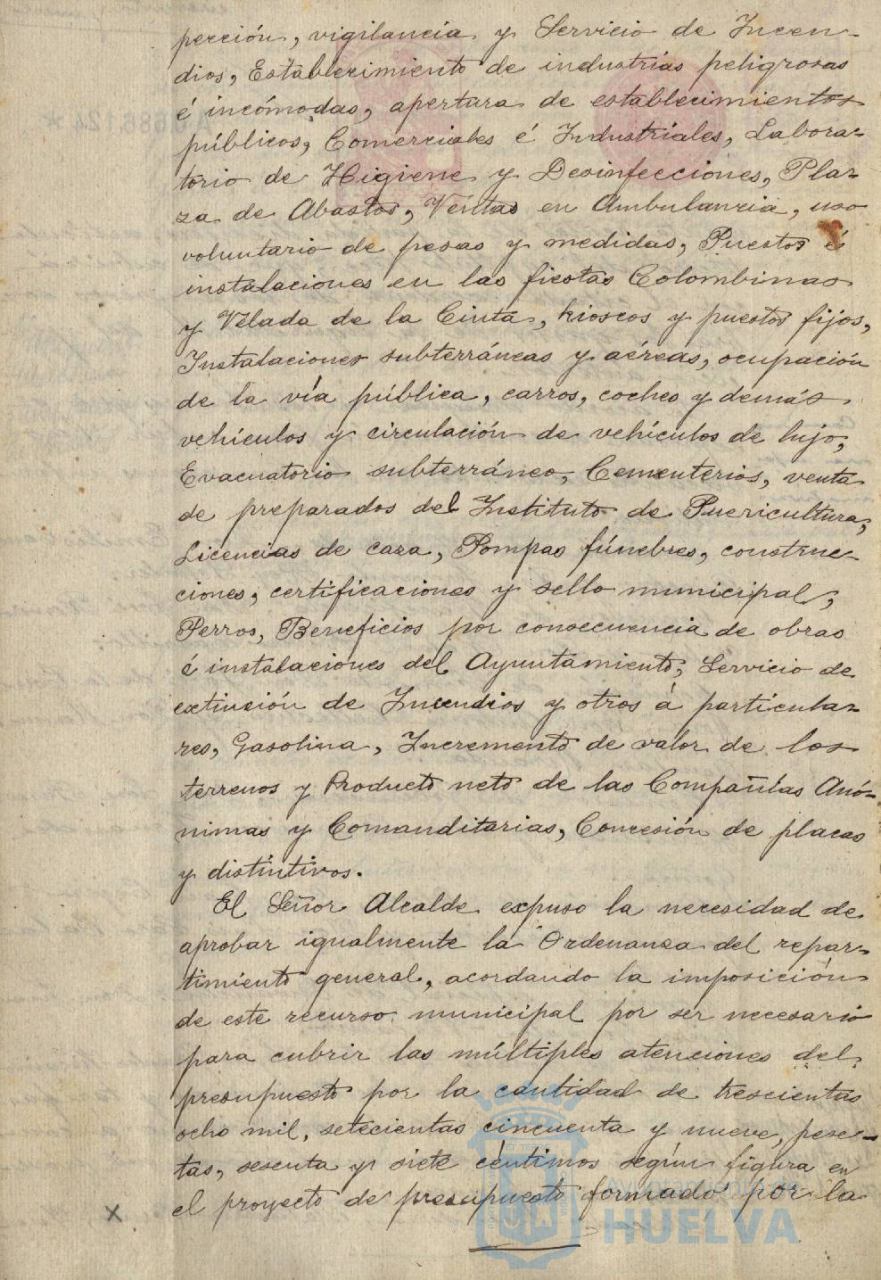 pección, vigilancia y Servicio de Incen-
dios, Establecimiento de industrias peligrosas
é incómodas, apertura de establecimientos
públicos, Comerciales é Industriales, Labora-
torio de Higiene y Desinfecciones, Pla-
za de Abastos, Ventas en Ambulancia, uso
voluntario de pesas y medidas, Puestos é
instalaciones en las fiestas Colombinas
y Velada de la Cinta, kioscos y puestos fijos,
Instalaciones subterráneas y aéreas, ocupación
de la vía pública, carros, coches y demás
vehículos y circulación de vehículos de lujo,
Evacuatorio subterráneo, Cementerios, venta
de preparados del Instituto de Puericultura,
Licencias de caza, Pompas fúnebres, construc-
ciones, certificaciones y sello municipal,
Perros, Beneficios por consecuencia de obras
é instalaciones del Ayuntamiento, Servicio de
extinción de Incendios y otros á particula-
res, Gasolina, Incremento de valor de los
terrenos y Producto neto de las Compañías Anó-
nimas y Comanditarias, Concesión de placas
y distintivos.
El Señor Alcalde expuso la necesidad de
aprobar igualmente la Ordenanza del repar-
timiento general, acordando la imposición
de este recurso municipal por ser necesario
para cubrir las múltiples atenciones del
presupuesto por la cantidad de trescientas
ocho mil, setecientas cincuenta y nueve, pese-
tas, sesenta y siete céntimos según figura en
el proyecto de presupuesto formado por la
Ayuntamiento de
HUELVA